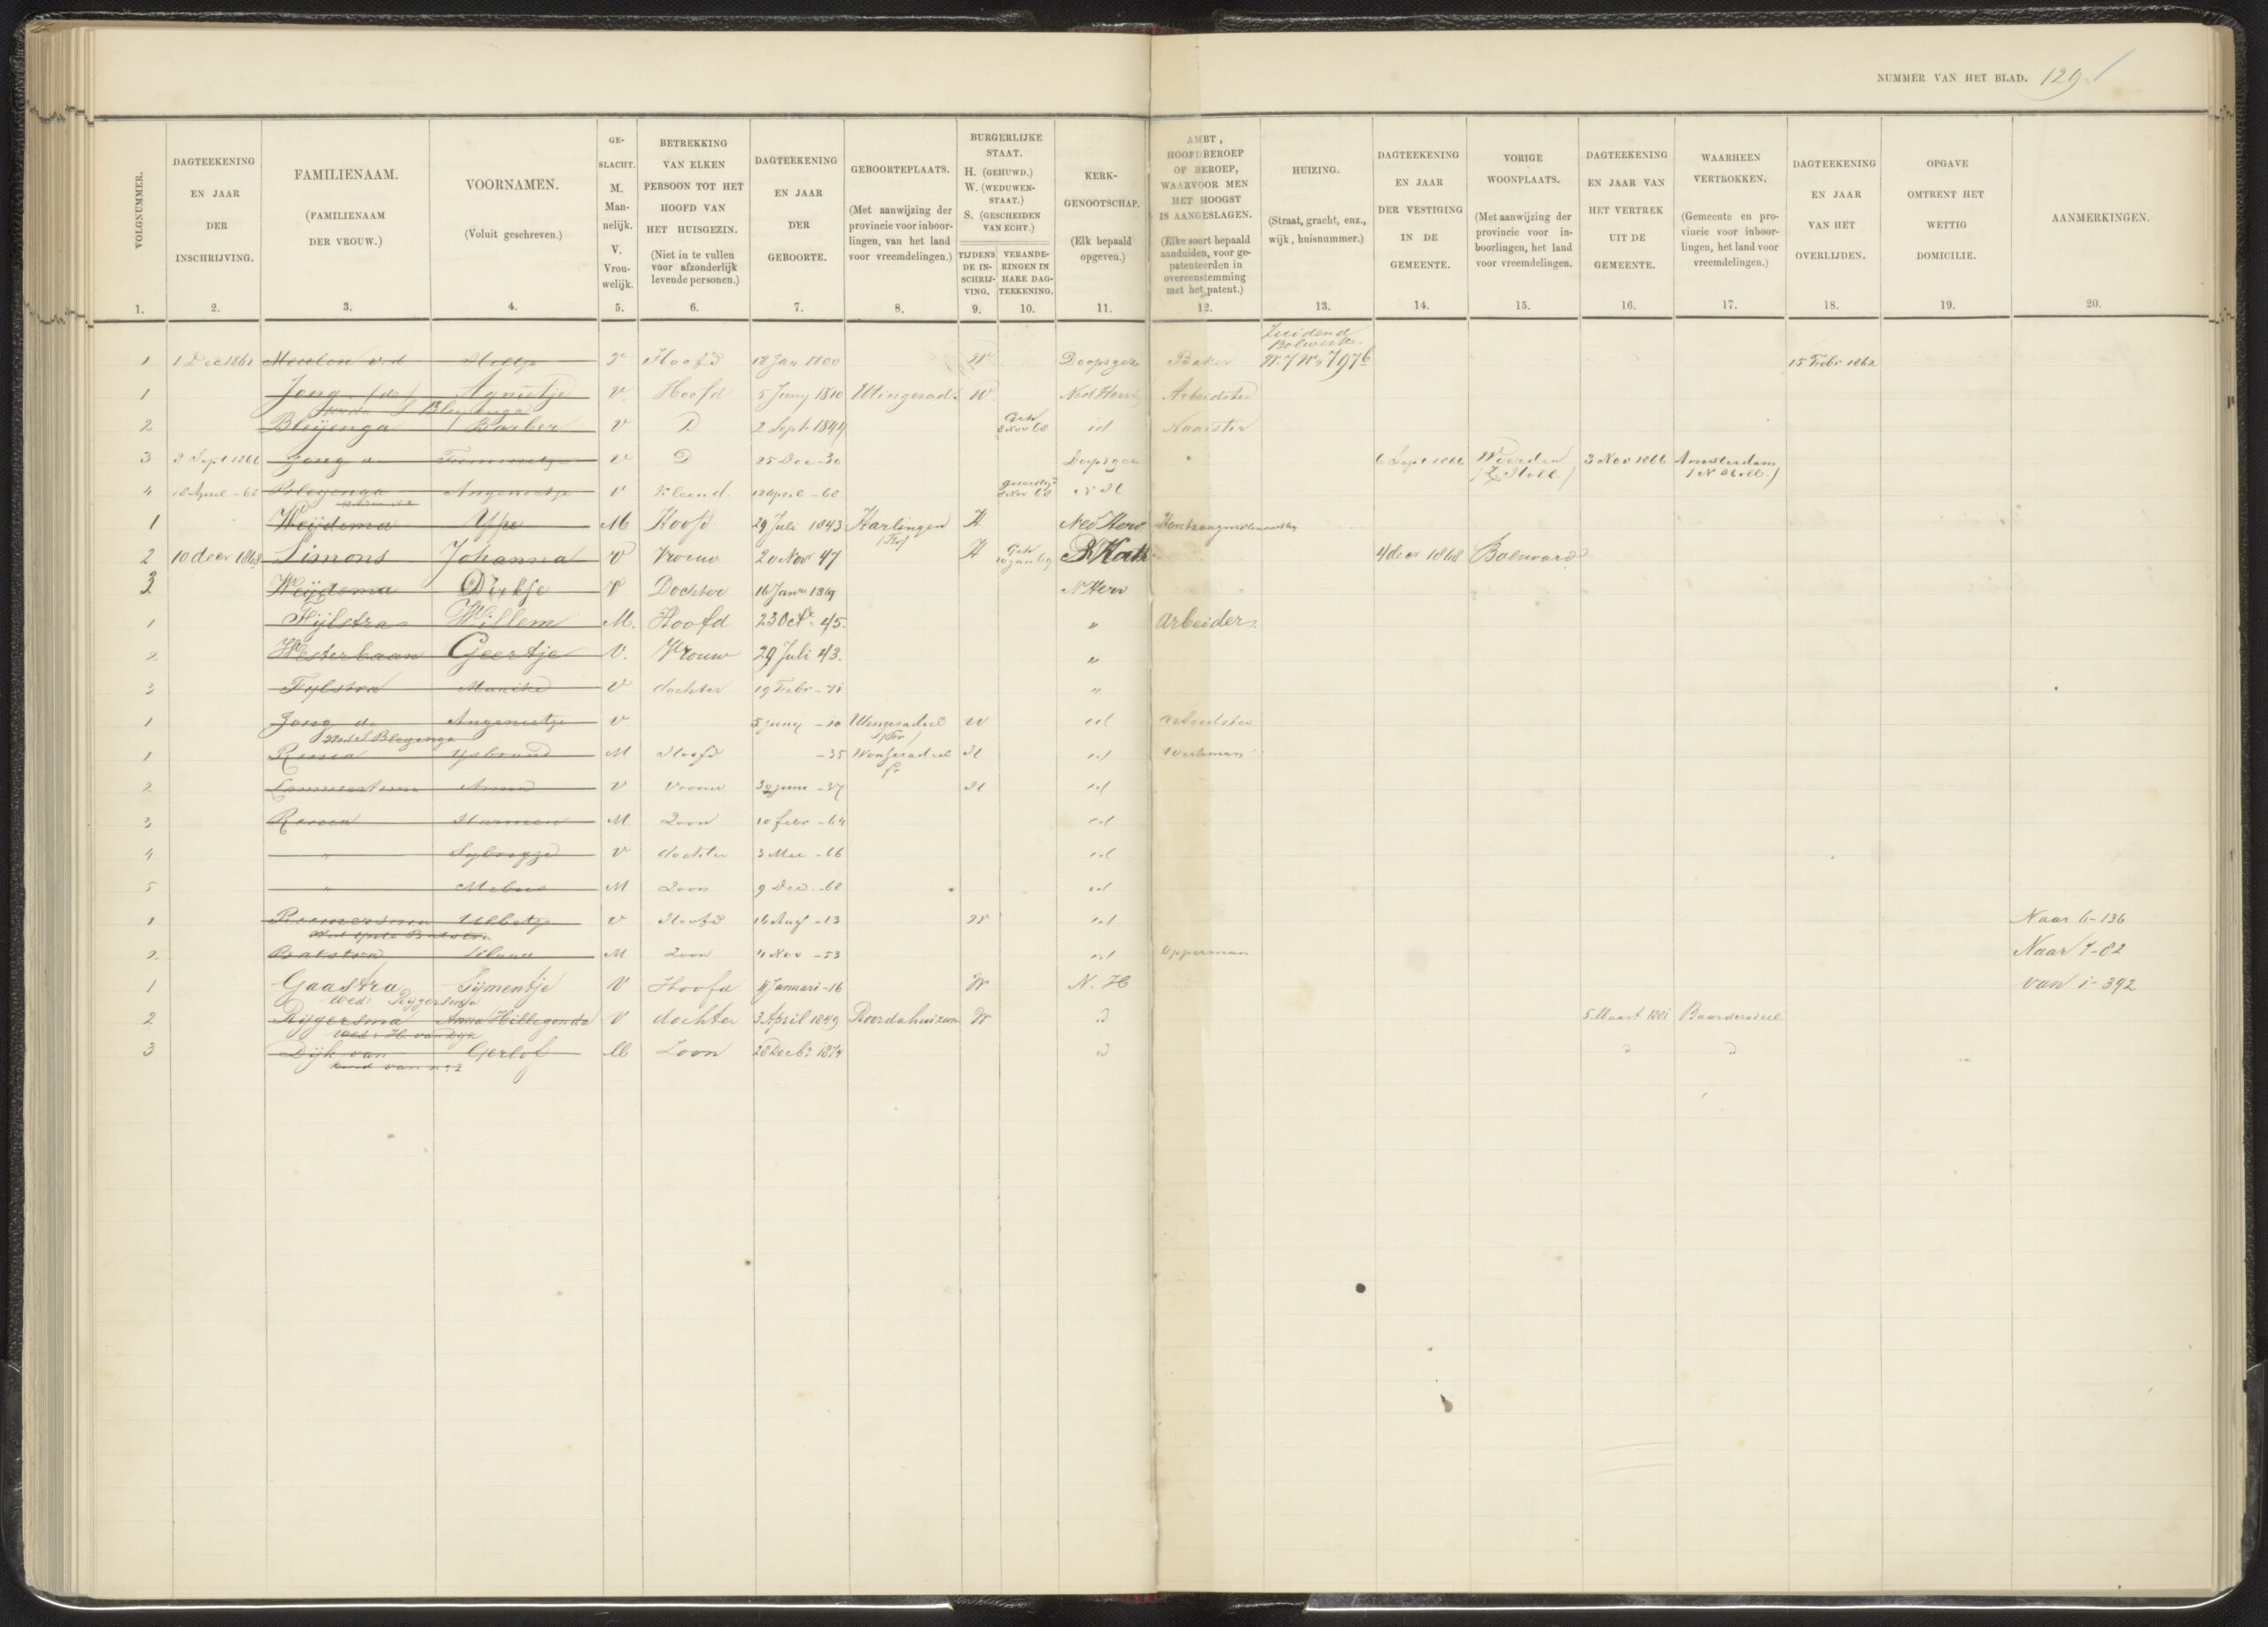 NUMMER VAN HET BLAD. 129.
VOLGNUMMER. 1.
DAGTEEKENING EN JAAR DER INSCHRIJVING. 2.
FAMILIENAAM. (FAMILIENAAM DER VROUW.) 3.
VOORNAMEN. (Voluit geschreven.) 4.
GESLACHT. M. Mannelijk. V. Vrouwelijk. 5.
BETREKKING VAN ELKEN PERSOON TOT HET HOOFD VAN HET HUISGEZIN. (Niet in te vullen voor afzonderlijk levende personen.) 6.
DAGTEEKENING EN JAAR DER GEBOORTE. 7.
GEBOORTEPLAATS. (Met aanwijzing der provincie voor inboorlingen, van het land voor vreemdelingen.) 8.
BURGERLIJKE STAAT. H. (GEHUWD.) W. (WEDUWENSTAAT.) S. (GESCHEIDEN VAN ECHT.)
TIJDENS DE INSCHRIJVING. 9.
VERANDERINGEN IN HARE DAGTEEKENING. 10.
KERKGENOOTSCHAP. (Elk bepaald opgeven.) 11.
AMBT, HOOFDBEROEP OF BEROEP, WAARVOOR MEN HET HOOGST IS AANGESLAGEN. (Elke soort bepaald aanduiden, voor gepatenteerden in overeenstemming met het patent.) 12.
HUIZING. (Straat, gracht, enz., wijk, huisnummer.) 13.
DAGTEEKENING EN JAAR DER VESTIGING IN DE GEMEENTE. 14.
VORIGE WOONPLAATS. (Met aanwijzing der provincie voor inboorlingen, het land voor vreemdelingen. 15.
DAGTEEKENING EN JAAR VAN HET VERTREK UIT DE GEMEENTE. 16.
WAARHEEN VERTROKKEN. (Gemeente en provincie voor inboorlingen, het land voor vreemdelingen.) 17.
DAGTEEKENING EN JAAR VAN HET OVERLIJDEN. 18.
OPGAVE OMTRENT HET WETTIG DOMICILIE. 19.
AANMERKINGEN. 20.
Bolwerk
1 1 Dec 1861 Meulen v.d. Hoofd 18 Jan 1800 W Doopsgez W. 7 No 797b 15 Febr 1862
1 Jong (de) Agnietje V Hoofd 5 Juny 1810 Utingerad. W Ned Herv Arbeidster
2 Bleijenga Barber V D 2 Sept 1844 Geh 8 Nov 68 id Naaister
3 3 Sept 1866 Jong de V D 25 Dec -30 Doopsgez 6 Sept 1866 Woerden (Z. Holl.) 3 Nov 1866 Amsterdam (N Holl.)
4 18 April -68 Bleijenga Angenietje V Kleind. 12 april -68 8 Nov 68 N H
1 Weijdema Ype M Hoofd 29 Juli 1843 Harlingen H Ned Herv.
2 10 decr 1868 Simons Johanna V Vrouw 20 Novr 47 H Geh 10 jan 69 R Kath 4 decr 1868 Bolsward
3 Weijdema Dirkje V Dochter 16 Janu 1869 N Herv
1 Fijlstra Willem M. Hoofd 23 Oct. 45. " arbeider
2 Westerbaan Geertje V. Vrouw 29 Juli 43. "
3 Fylstra V dochter 19 Febr -71 "
1 Jong de Angenietje V 5 juny -10 Utingeradeel W id arbeidster
Wed. S Bleijenga
1 Ysbrand M Hoofd -35 Wonseradeel H id Werkman
fr
2 Anna V Vrouw 30 juni -37 H id
3 Harmen M Zoon 10 febr -64 id
4 " V dochter 3 Mei -66 id
5 " M Zoon 9 Dec -68 id
1 Ulbetje V Hoofd 16 Aug -13 W id Naar 6-136
2 Balstra M Zoon 4 Nov -53 id opperman Naar 7-82
1 Gaastra Sijmentje V Hoofd Januari -16 W N. H van 1-392
Wed: Rijgersma
2 Rijgersma Anna Hillegonda V dochter 3 April 1849 Roordahuizum W " 5 Maart 1881 Baarderadeel
Wed: H. van Dijk
3 Dijk van Gerlof M Zoon 28 Decbr 1874 " " "
kind van no 2